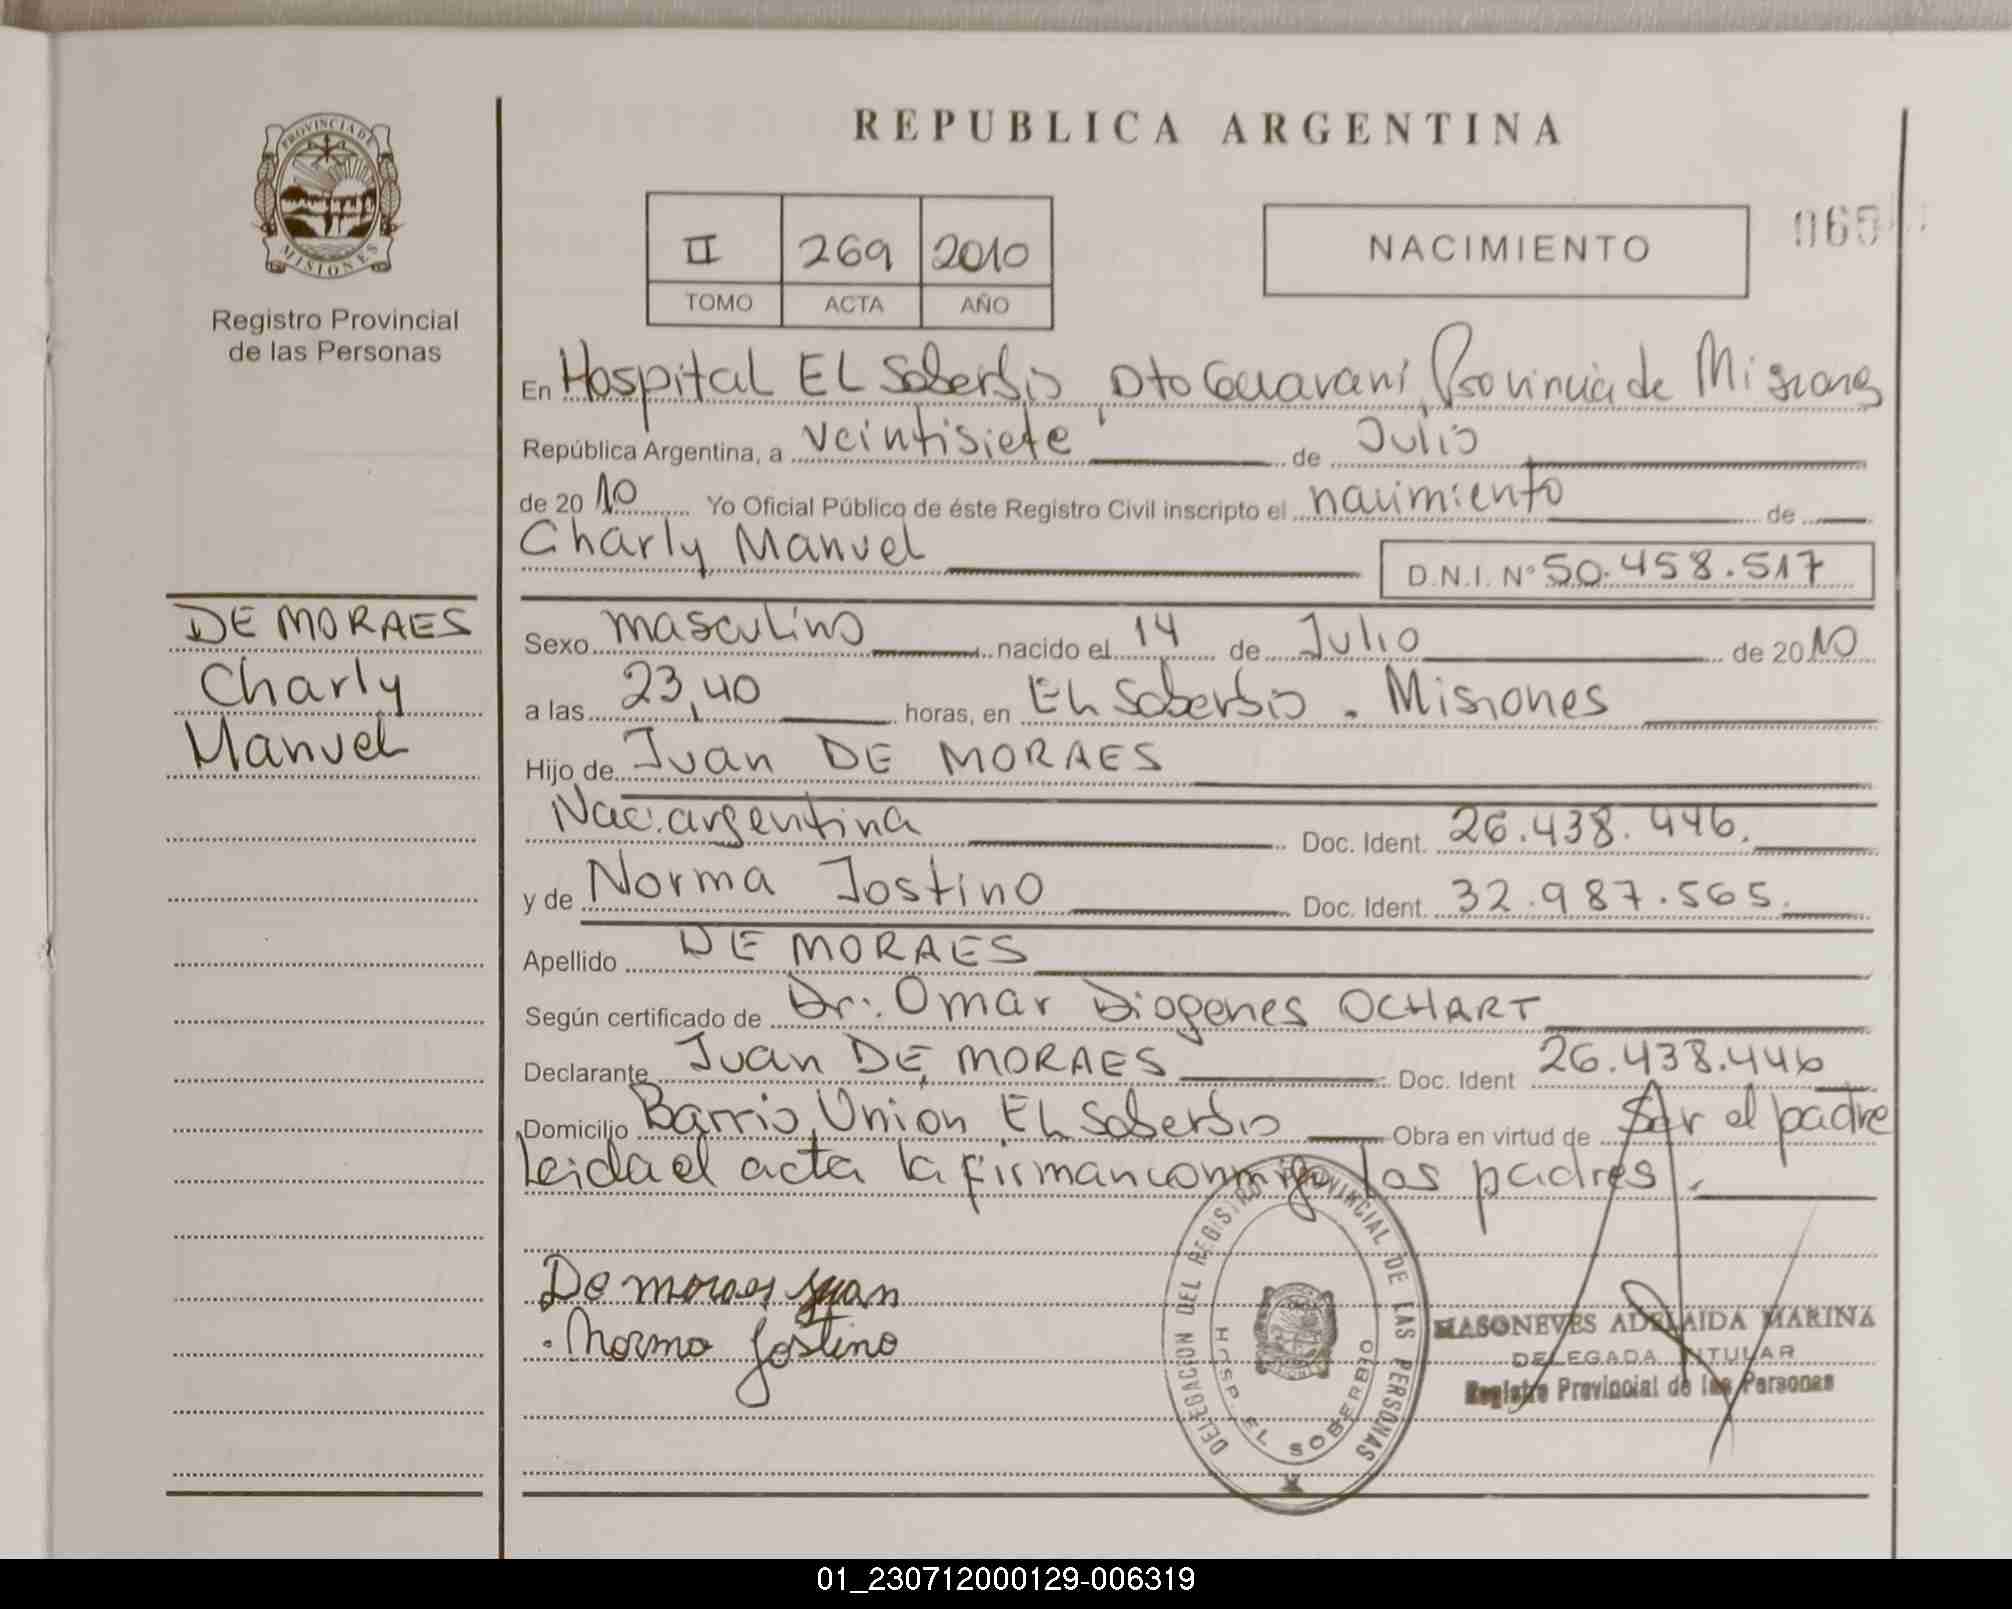 REPUBLICA ARGENTINA
PROVINCIA DE
MISIONES
Registro Provincial
de las Personas
II 269 2010
TOMO ACTA AÑO
NACIMIENTO
En Hospital EL Soberbio, Dto Guarani, Provincia de Misiones
República Argentina, a veintisiete de Julio
de 2010 Yo Oficial Público de éste Registro Civil inscripto el nacimiento de
Charly Manuel
D.N.I. N° 50.458.517
DE MORAES
Charly
Manuel
Sexo masculino nacido el 14 de Julio de 2010
a las 23,40 horas, en EL Soberbio. Misiones
Hijo de Juan DE MORAES
Nac. argentina Doc. Ident. 26.438.446.
y de Norma Jostino Doc. Ident. 32.987.565.
Apellido DE MORAES
Según certificado de Dr: Omar Diogenes OCHART
Declarante Juan DE MORAES Doc. Ident 26.438.446
Domicilio Barrio Union EL Soberbio Obra en virtud de Ser el padre
Leida el acta la firman conmigo los padres.
De moraes Juan
Norma Jostino
DELEGACION DEL REGISTRO PROVINCIAL DE LAS PERSONAS
HOSP. EL SOBERBIO
MASONEVES ADELAIDA MARINA
DELEGADA TITULAR
Registro Provincial de las Personas
01_230712000129-006319